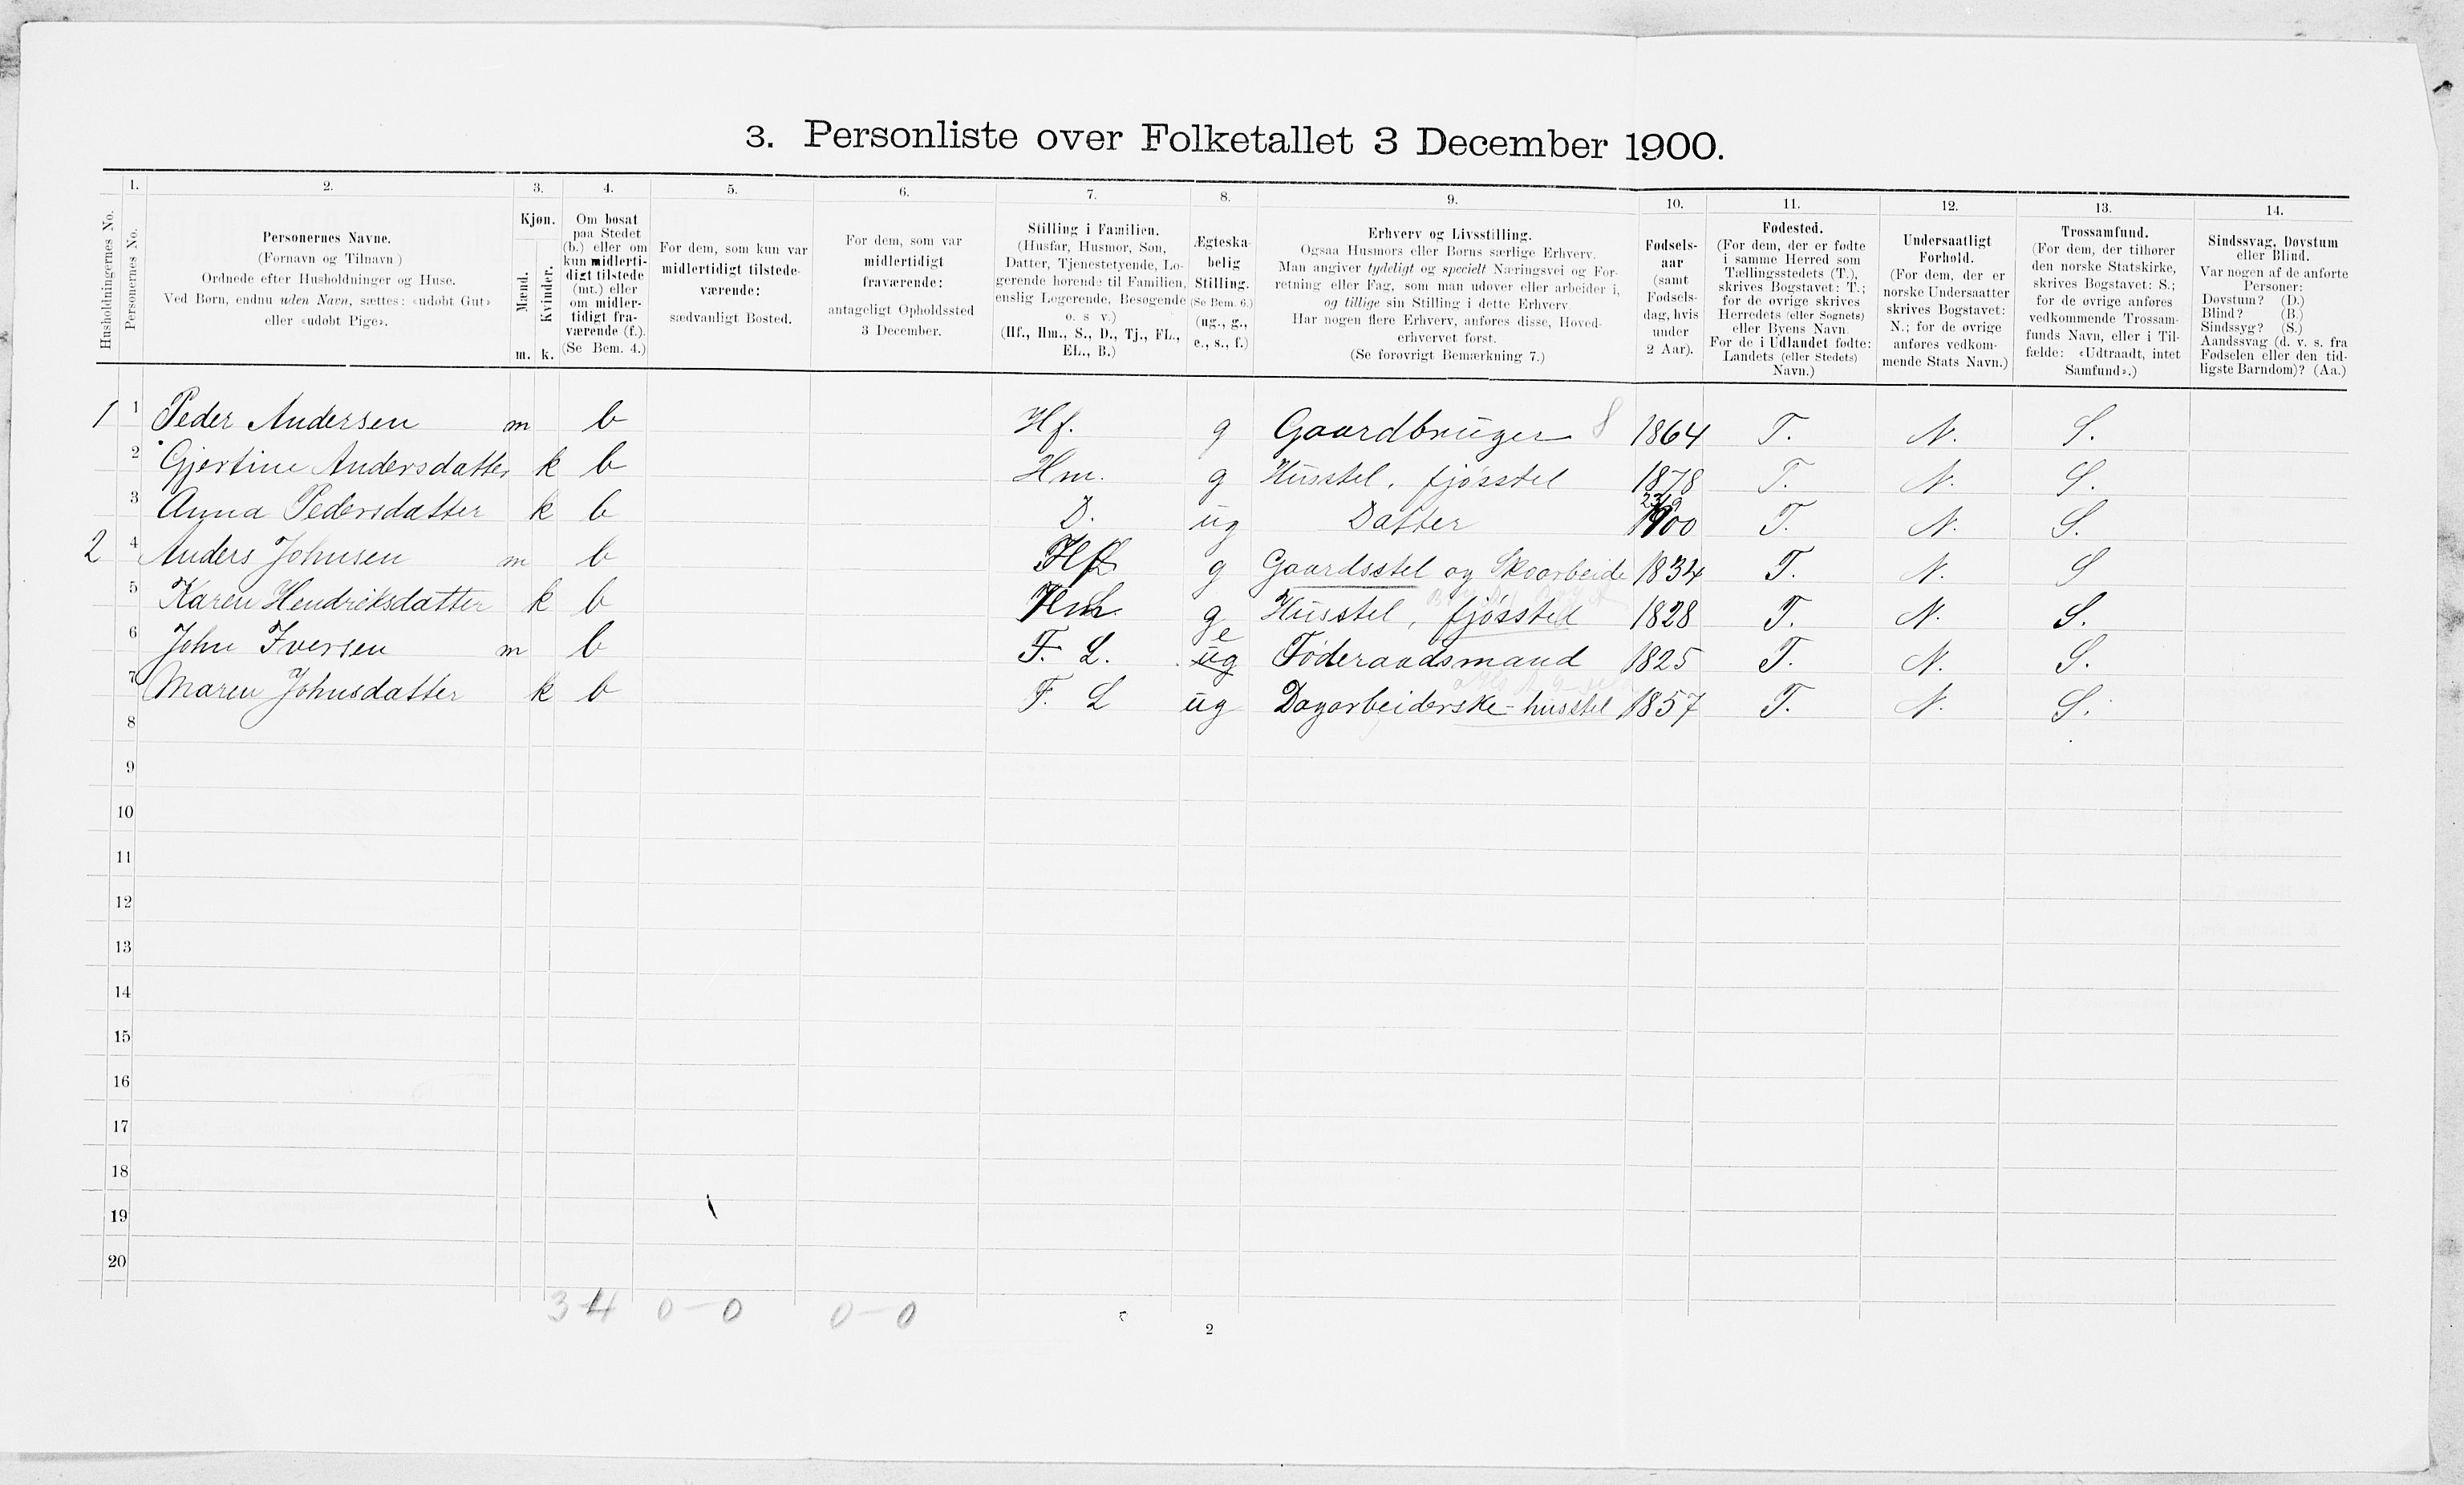 3. Personliste over Folketallet 3 December 1900.
1. 2. 3. 4. 5. 6. 7. 8. 9. 10. 11. 12. 13. 14.
Husholdningernes No.
Personernes No.
Personernes Navne.
(Fornavn og Tilnavn)
Ordnede efter Husholdninger og Huse.
Ved Børn, endnu uden Navn, sættes: «udøbt Gut»
eller «udøbt Pige».
Kjøn.
Mænd.
Kvinder.
m. k.
Om bosat
paa Stedet
(b.) eller om
kun midlerti-
digt tilstede
(mt.) eller
om midler-
tidigt fra-
værende (f.).
(Se Bem. 4.)
For dem, som kun var
midlertidigt tilstede-
værende:
sædvanligt Bosted.
For dem, som var
midlertidigt
fraværende:
antageligt Opholdssted
3 December.
Stilling i Familien.
(Husfar, Husmor, Søn,
Datter, Tjenestetyende, Lo-
gerende hørende til Familien,
enslig Logerende, Besøgende
o. s v.)
(Hf., Hm., S., D., Tj., FL.,
EL., B.)
Ægteska-
belig
Stilling.
(Se Bem. 6.)
(ug., g.,
e., s., f.)
Erhverv og Livsstilling.
Ogsaa Husmors eller Børns særlige Erhverv.
Man angiver tydeligt og specielt Næringsvei og For-
retning eller Fag, som man udøver eller arbeider i,
og tillige sin Stilling i dette Erhverv.
Har nogen flere Erhverv, anføres disse, Hoved-
erhvervet først.
(Se forøvrigt Bemærkning 7.)
Fødsels-
aar
(samt
Fødsels-
dag, hvis
under
2 Aar).
Fødested.
(For dem, der er fødte
i samme Herred som
Tællingsstedets (T.),
skrives Bogstavet: T.;
for de øvrige skrives
Herredets (eller Sognets)
eller Byens Navn.
For de i Udlandet fødte:
Landets (eller Stedets)
Navn.)
Undersaatligt
Forhold.
(For dem, der er
norske Undersaatter
skrives Bogstavet:
N.; for de øvrige
anføres vedkom-
mende Stats Navn.)
Trossamfund.
(For dem, der tilhører
den norske Statskirke,
skrives Bogstavet: S.;
for de øvrige anføres
vedkommende Trossam-
funds Navn, eller i Til-
fælde: «Udtraadt, intet
Samfund».)
Sindssvag, Døvstum
eller Blind.
Var nogen af de anførte
Personer:
Døvstum? (D.)
Blind? (B.)
Sindssyg? (S.)
Aandssvag (d. v. s. fra
Fødselen eller den tid-
ligste Barndom)? (Aa.)
1 1 Peder Andersen m b Hf. g Gaardbruger 8 1864 T. N. S.
2 Gjertine Andersdatter k b Hm. g Husstel, fjøsstel 1878 T. N. S.
3 Anna Pedersdatter k b D. ug Datter 1900 T. N. S.
2 4 Anders Johnsen m b g Gaardsstel og Skoarbeide 1834 T. N. S
5 Karen Hendriksdatter k b g Husstel, fjøsstel 1828 T. N. S.
6 John Iversen m b F. L. ug e Føderaadsmand 1825 T. N. S.
7 Maren Johnsdatter k b F. L ug Dagarbeiderske - husstel 1857 T. N. S.
8
9
10
11
12
13
14
15
16
17
18
19
20
3-4 0-0 0-0
2